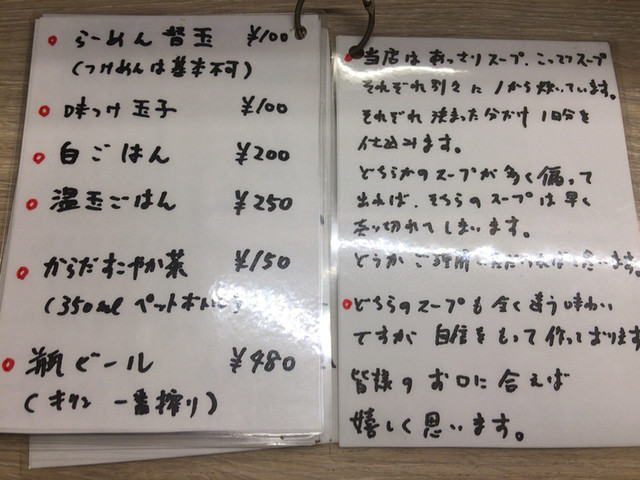 らーめん替玉 ¥100
(つけめんは基本不可)
味つけ玉子 ¥100
白ごはん ¥200
温玉ごはん ¥250
からだすこやか茶 ¥150
(350ml ペットボトル)
瓶ビール ¥480
(キリン 一番搾り)
当店はあっさりスープ、こってりスープ
それぞれ別々に1から炊いています。
それぞれ決まった分だけ1日分を
仕込みます。
どちらかのスープが多く偏って
出れば、そちらのスープは早く
売り切れてしまいます。
どうかご理解いただければと思います。
どちらのスープも全く違う味わい
ですが自信をもって作っております
皆様のお口に合えば
嬉しく思います。